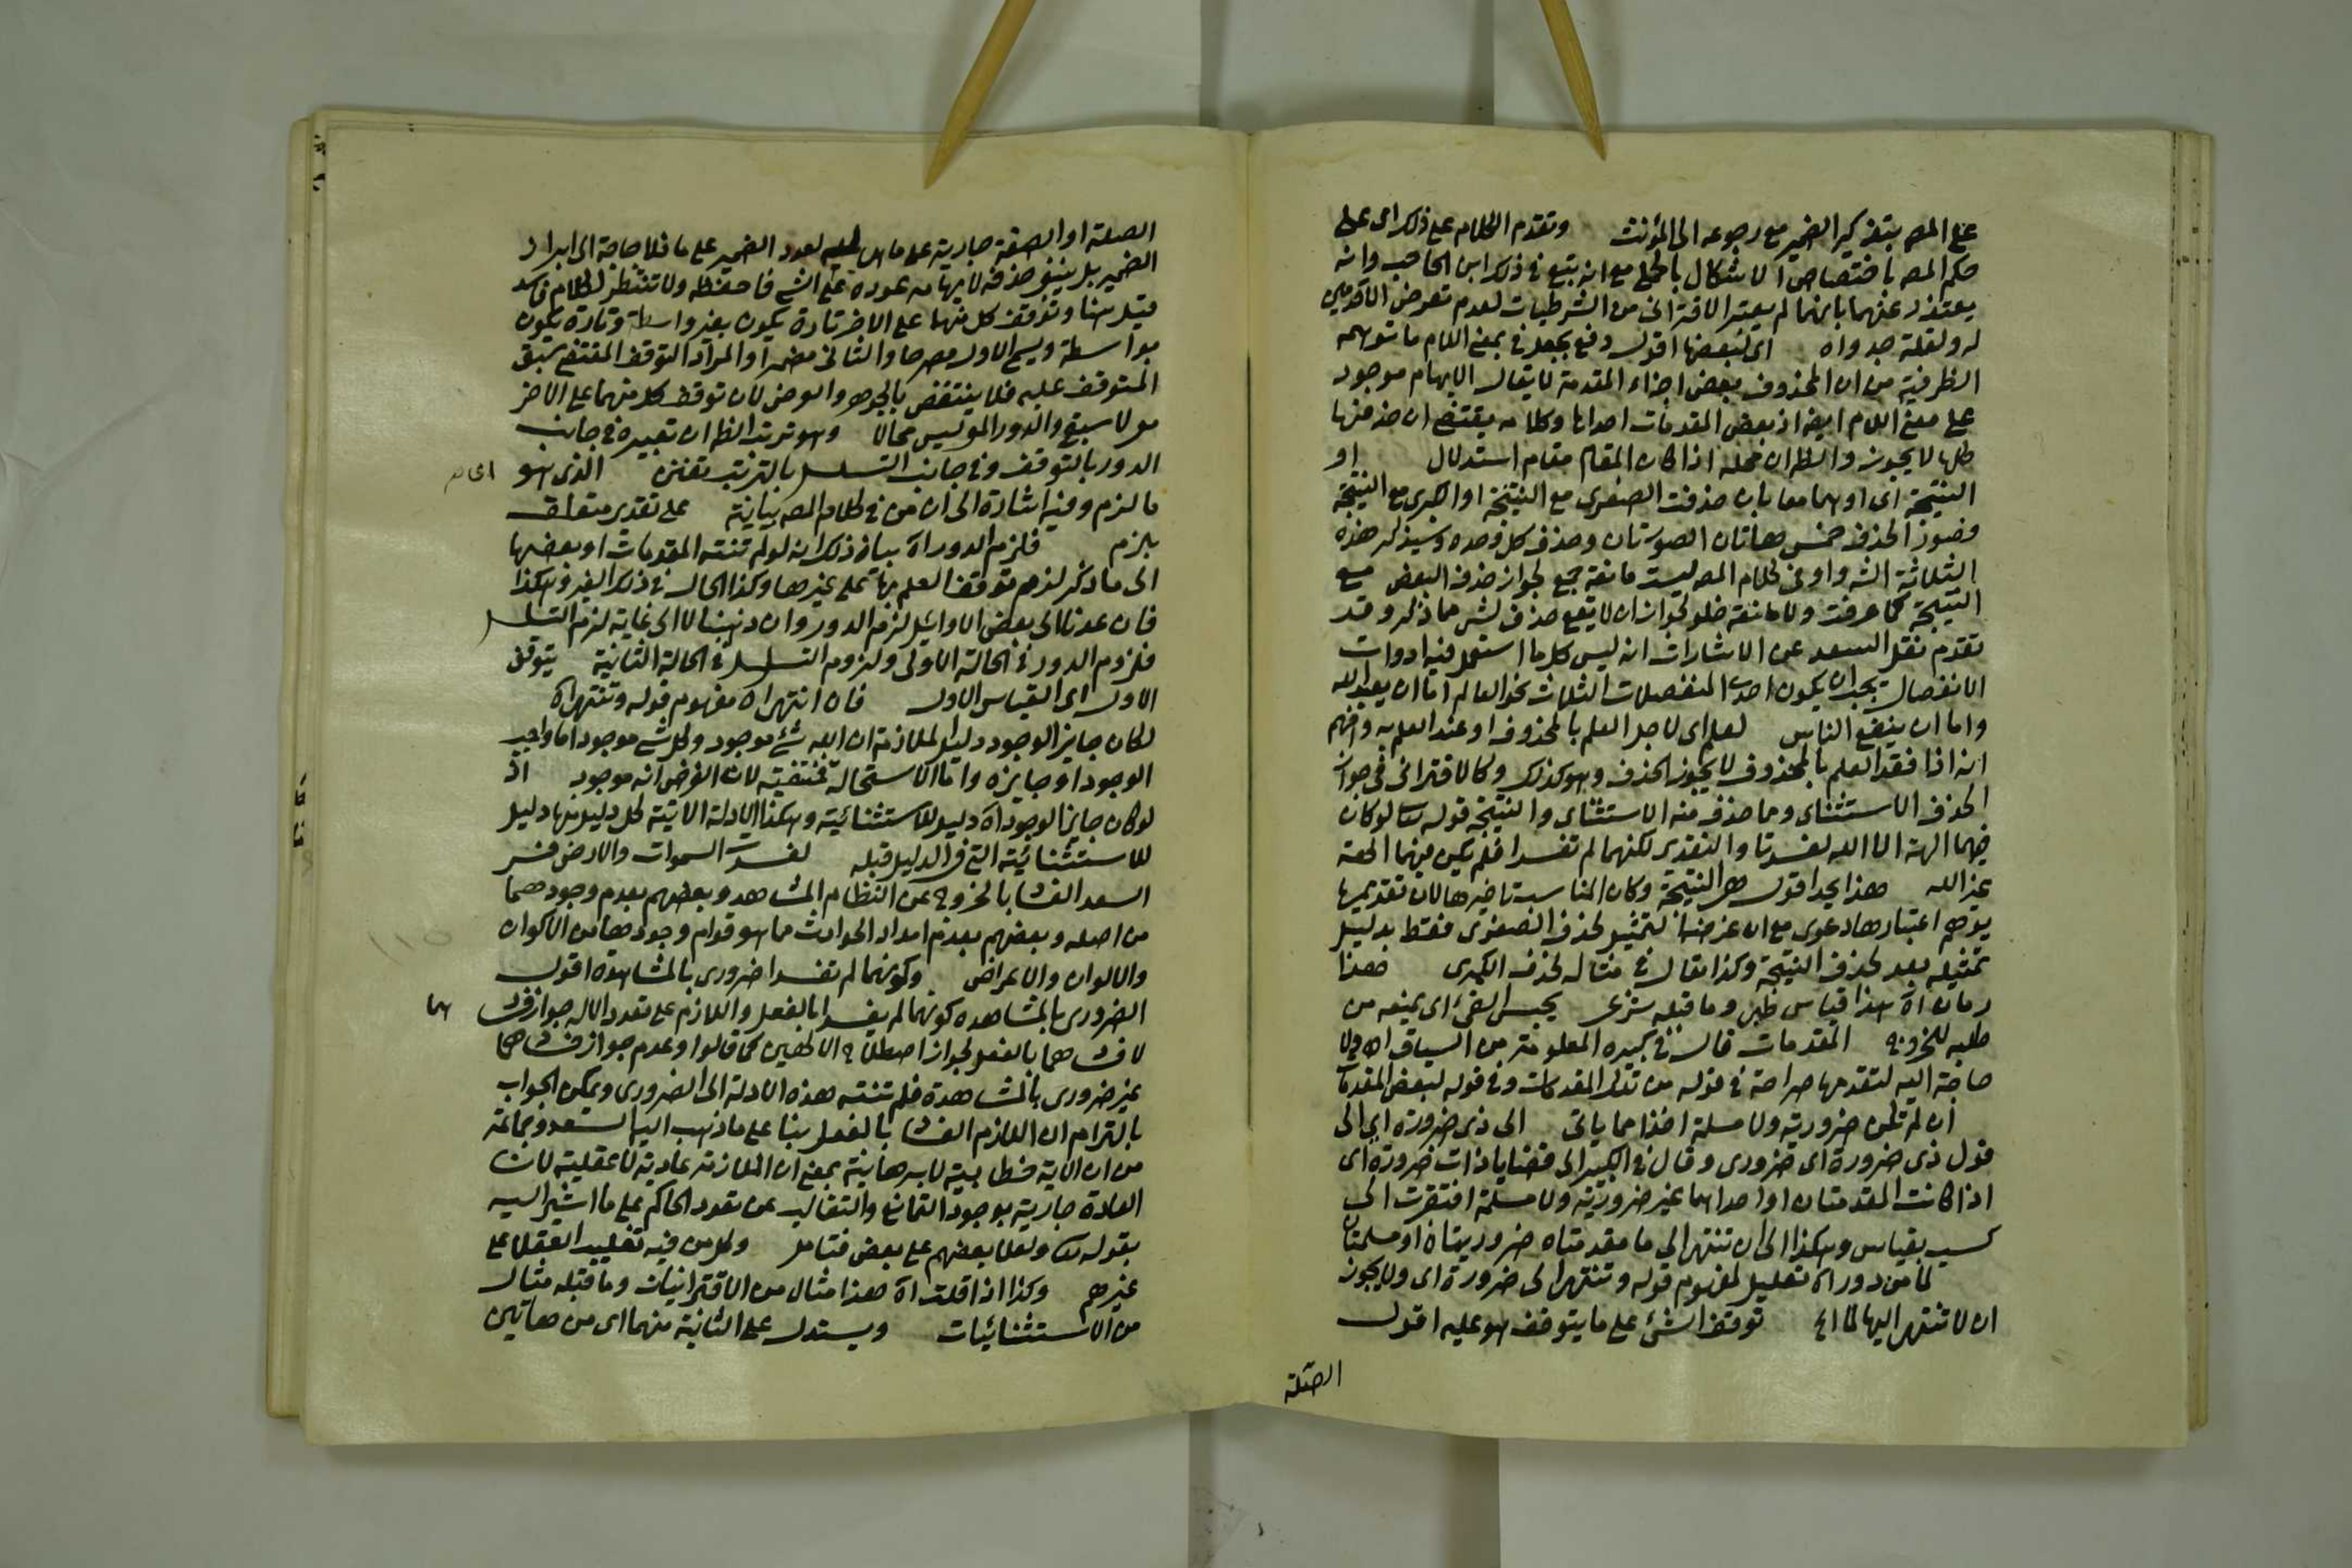 على المصر بتذكير الضمير مع رجوعه الى المؤنث وتقدم الكلام على ذلك اى على
حكم المصر باختصاص الاشكال بالحلى مع انه تبع فى ذلك ابن الحاجب وانه
يعتذر عنهما بانهما لم يعتبرا الاقترانى من الشرطيات لعدم تعرض الاقدمين
له ولقلة جدواه اى لبعضها اقول دفع بجعل فى بمعنى اللام ما توهمه
الظرفية من ان المحذوف بعض اجزاء المقدمة لا يقال الابهام موجود
على معنى اللام ايضا اذ بعض المقدمات احداها وكلامه يقتضى ان حذفها
كلها لا يجوز والظاهر ان محله اذا كان المقام مقام استدلال او
النتيجة اى او هما معا بان حذفت الصغرى مع النتيجة او الكبرى مع النتيجة
فصور الحذف خمس هاتان الصورتان وحذف كل وحده وسيذكر هذه
الثلاثة الشه واو فى كلام المصر ليست مانعة جمع لجواز حذف البعض مع
النتيجة كما عرفت ولا مانعة خلو لجواز ان لا يقع حذف لشى مما ذكر وقد
تقدم نقل السعد عن الاشارات انه ليس كلما استعمل فيه ادوات
الانفصال يجب ان يكون احدى المنفصلات الثلاث نحو العالم اما ان يعبد الله
واما ان ينفع الناس لعلم اى لاجل العلم بالمحذوف او عند العلم به وافهم
انه اذا فقد العلم بالمحذوف لا يجوز الحذف وهو كذلك وكالاقترانى فى جواز
الحذف الاستثنائى ومما حذف منه الاستثناى والنتيجة قوله تعالى لو كان
فيهما الهة الا الله لفسدتا والتقدير لكنهما لم تفسدا فلم يكن فيهما الهة
غير الله هذا يحد اقول هى النتيجة وكان المناسب تاخيرها لان تقديمها
يوهم اعتبارها دعوى مع ان غرضه التمثيل لحذف الصغرى فقط بدليل
تمثيله بعد لحذف النتيجة وكذا يقال فى مثاله لحذف الكبرى فهذا
رمان اه هذا قياس طبى وما قبله شرعى يحبس القئ اى يمنعه من
طلبه للخروج المقدمات قال فى كبيره المعلومة من السياق اهـ ولا
حاجة اليه لتقدمها صراحة فى قوله من تلك المقدمات وفى قوله لبعض المقدمات
ان لم تكن ضرورية ولا مسلمة اخذا مما ياتى الى ذى ضرورة اى الى
قول ذى ضرورة اى ضرورى وقال فى الكبير الى قضايا ذات ضرورة اى
اذا كانت المقدمتان او احداهما غير ضرورية ولا مسلمة افتقرت الى
كسب بقياس وهكذا الى ان تنتهى الى ما مقدمتاه ضروريتان او مسلمتان
لما من دور اه تعليل لمفهوم قوله وتنتهى الى ضرورة اى ولا يجوز
ان لا تنتهى اليها لما الخ توقف الشئ على ما يتوقف هو عليه اقول
الصلة
الصلة او الصفة جارية على ما هى له لعود الضمير على ما فلا حاجة الى ابراز
الضمير بل ينبغى حذفه لايهامه عوده على الشى فاحفظه ولا تنظر لكلام فاسد
قيل هنا وتوقف كل منهما على الاخر تارة يكون بغير واسطة وتارة يكون
بواسطة ويسمى الاول مصرحا والثانى مضمرا والمراد التوقف المقتضى سبق
المتوقف عليه فلا ينتقض بالجوهر والعرض لان توقف كل منهما على الاخر
مع لا سبقى والدور المعى ليس محالا وهو ترتب الظاهر ان تعبيره فى جانب
الدور بالتوقف وفى جانب التسلسل بالترتب تفنن الذى هو
ما لزم وفيه اشارة الى ان من فى كلام المصر بيانية على تقدير متعلق
بلزم فلزم الدور اه بيان ذلك انه لو لم تنته المقدمات او بعضها
الى ما ذكر لزم توقف العلم بها على غيرها وكذا الحال فى ذلك الغير وهكذا
فان عدنا الى بعض الاوائل لزم الدور وان ذهبنا لا الى غاية لزم التسلسل
فلزوم الدور فى الحالة الاولى ولزوم التسلسل فى الحالة الثانية يتوقف
الاول اى القياس الاول فان انتهى اه مفهوم قوله وتنتهى اه
لكان جايز الوجود دليل الملازمة ان الله شئ موجود وكل شى موجود اما واجب
الوجود او جايزه واما الاستحالة فمنتفية لان الفرض انه موجود اذ
لو كان جايز الوجود اه دليل للاستثنائية وهكذا الادلة الاتية كل دليل منها دليل
للاستثنائية التى فى الدليل قبله لفسدت السموات والارض فسر
السعد الفساد بالخروج عن النظام المشاهد وبعضهم بعدم وجودهما
من اصله وبعضهم بعدم امداد الحوادث مما هو قوام وجودها من الاكوان
والالوان والاعراض وكونهما لم تفسدا ضرورى بالمشاهدة اقول
الضرورى بالمشاهدة كونهما لم يفسدا بالفعل واللازم على تعدد الاله جواز فسادهما
لا فسادهما بالفعل لجواز اصطلاح الالهين كما قالوا وعدم جواز فسادهما
غير ضرورى بالمشاهدة فلم تنته هذه الادلة الى الضرورى ويمكن الجواب
بالتزام ان اللازم الفساد بالفعل بناء على ما ذهب اليه السعد وجماعة
من ان الاية خطابية لا برهانية بمعنى ان الملازمة عادية لا عقلية لان
العادة جارية بوجود التمانع والتغالب عن تعدد الحاكم على ما اشير اليه
بقوله تعالى ولعلا بعضهم على بعض فتامل وكل من فيه تغليب العقلا على
غيرهم وكذا اذا قلت اه هذا مثال من الاقترانيات وما قبله مثال
من الاستثنائيات ويستدل على الثانية منهما اى من هاتين